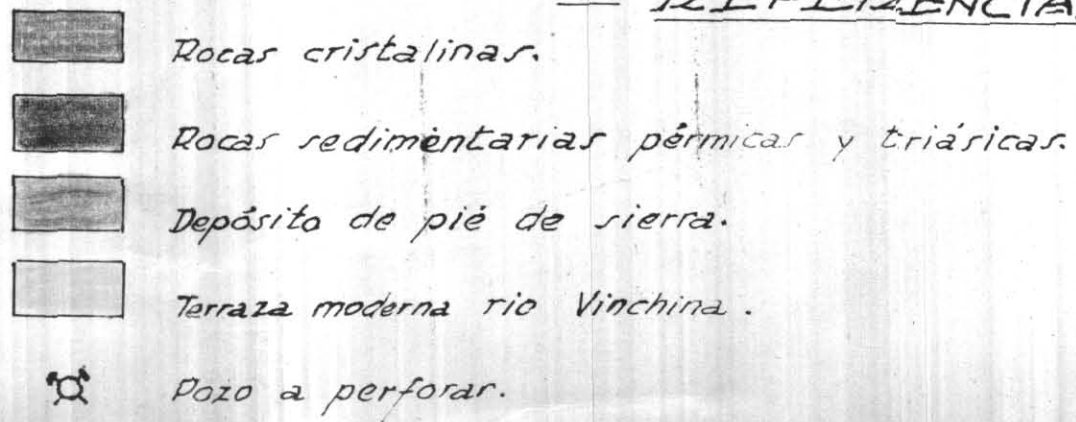 Rocas cristalinas.
Rocas sedimentarias pérmicas y triásicas.
Depósito de pié de sierra.
Terraza moderna rio Vinchina.
Pozo a perforar.